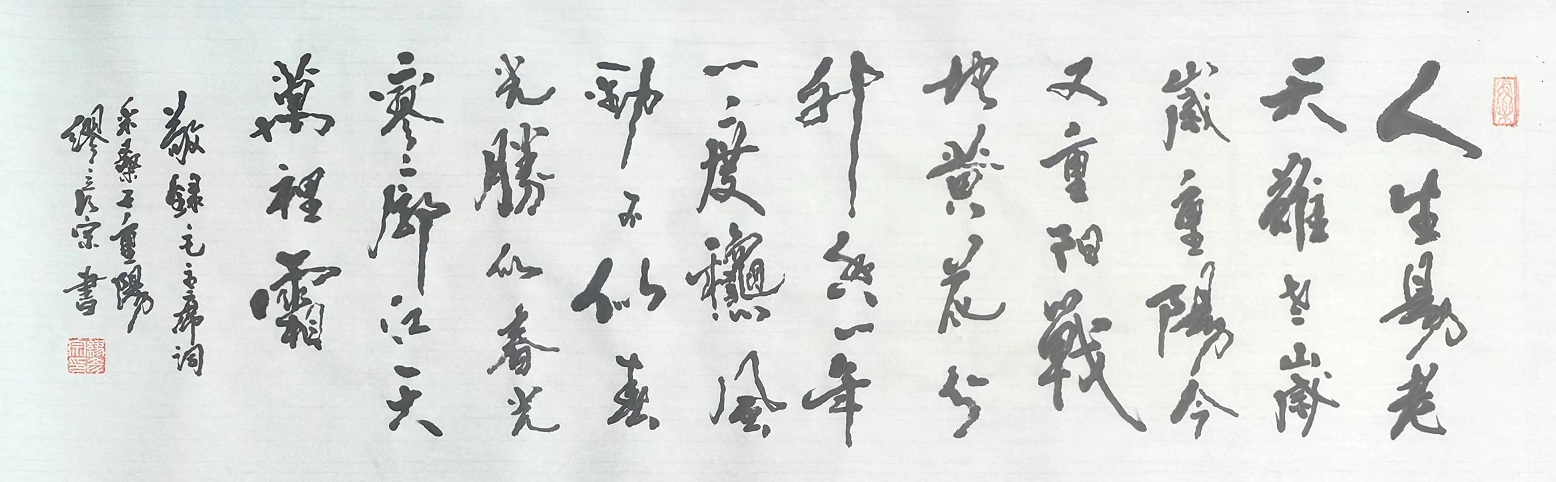 人生易老
天難老歲
歲重陽今
又重阳戰
地黄花分
外香一年
一度龝風
勁不似春
光勝似春光
寥廓江天
萬裡霜
敬録毛主席词
采桑子重陽
缪彦宗書